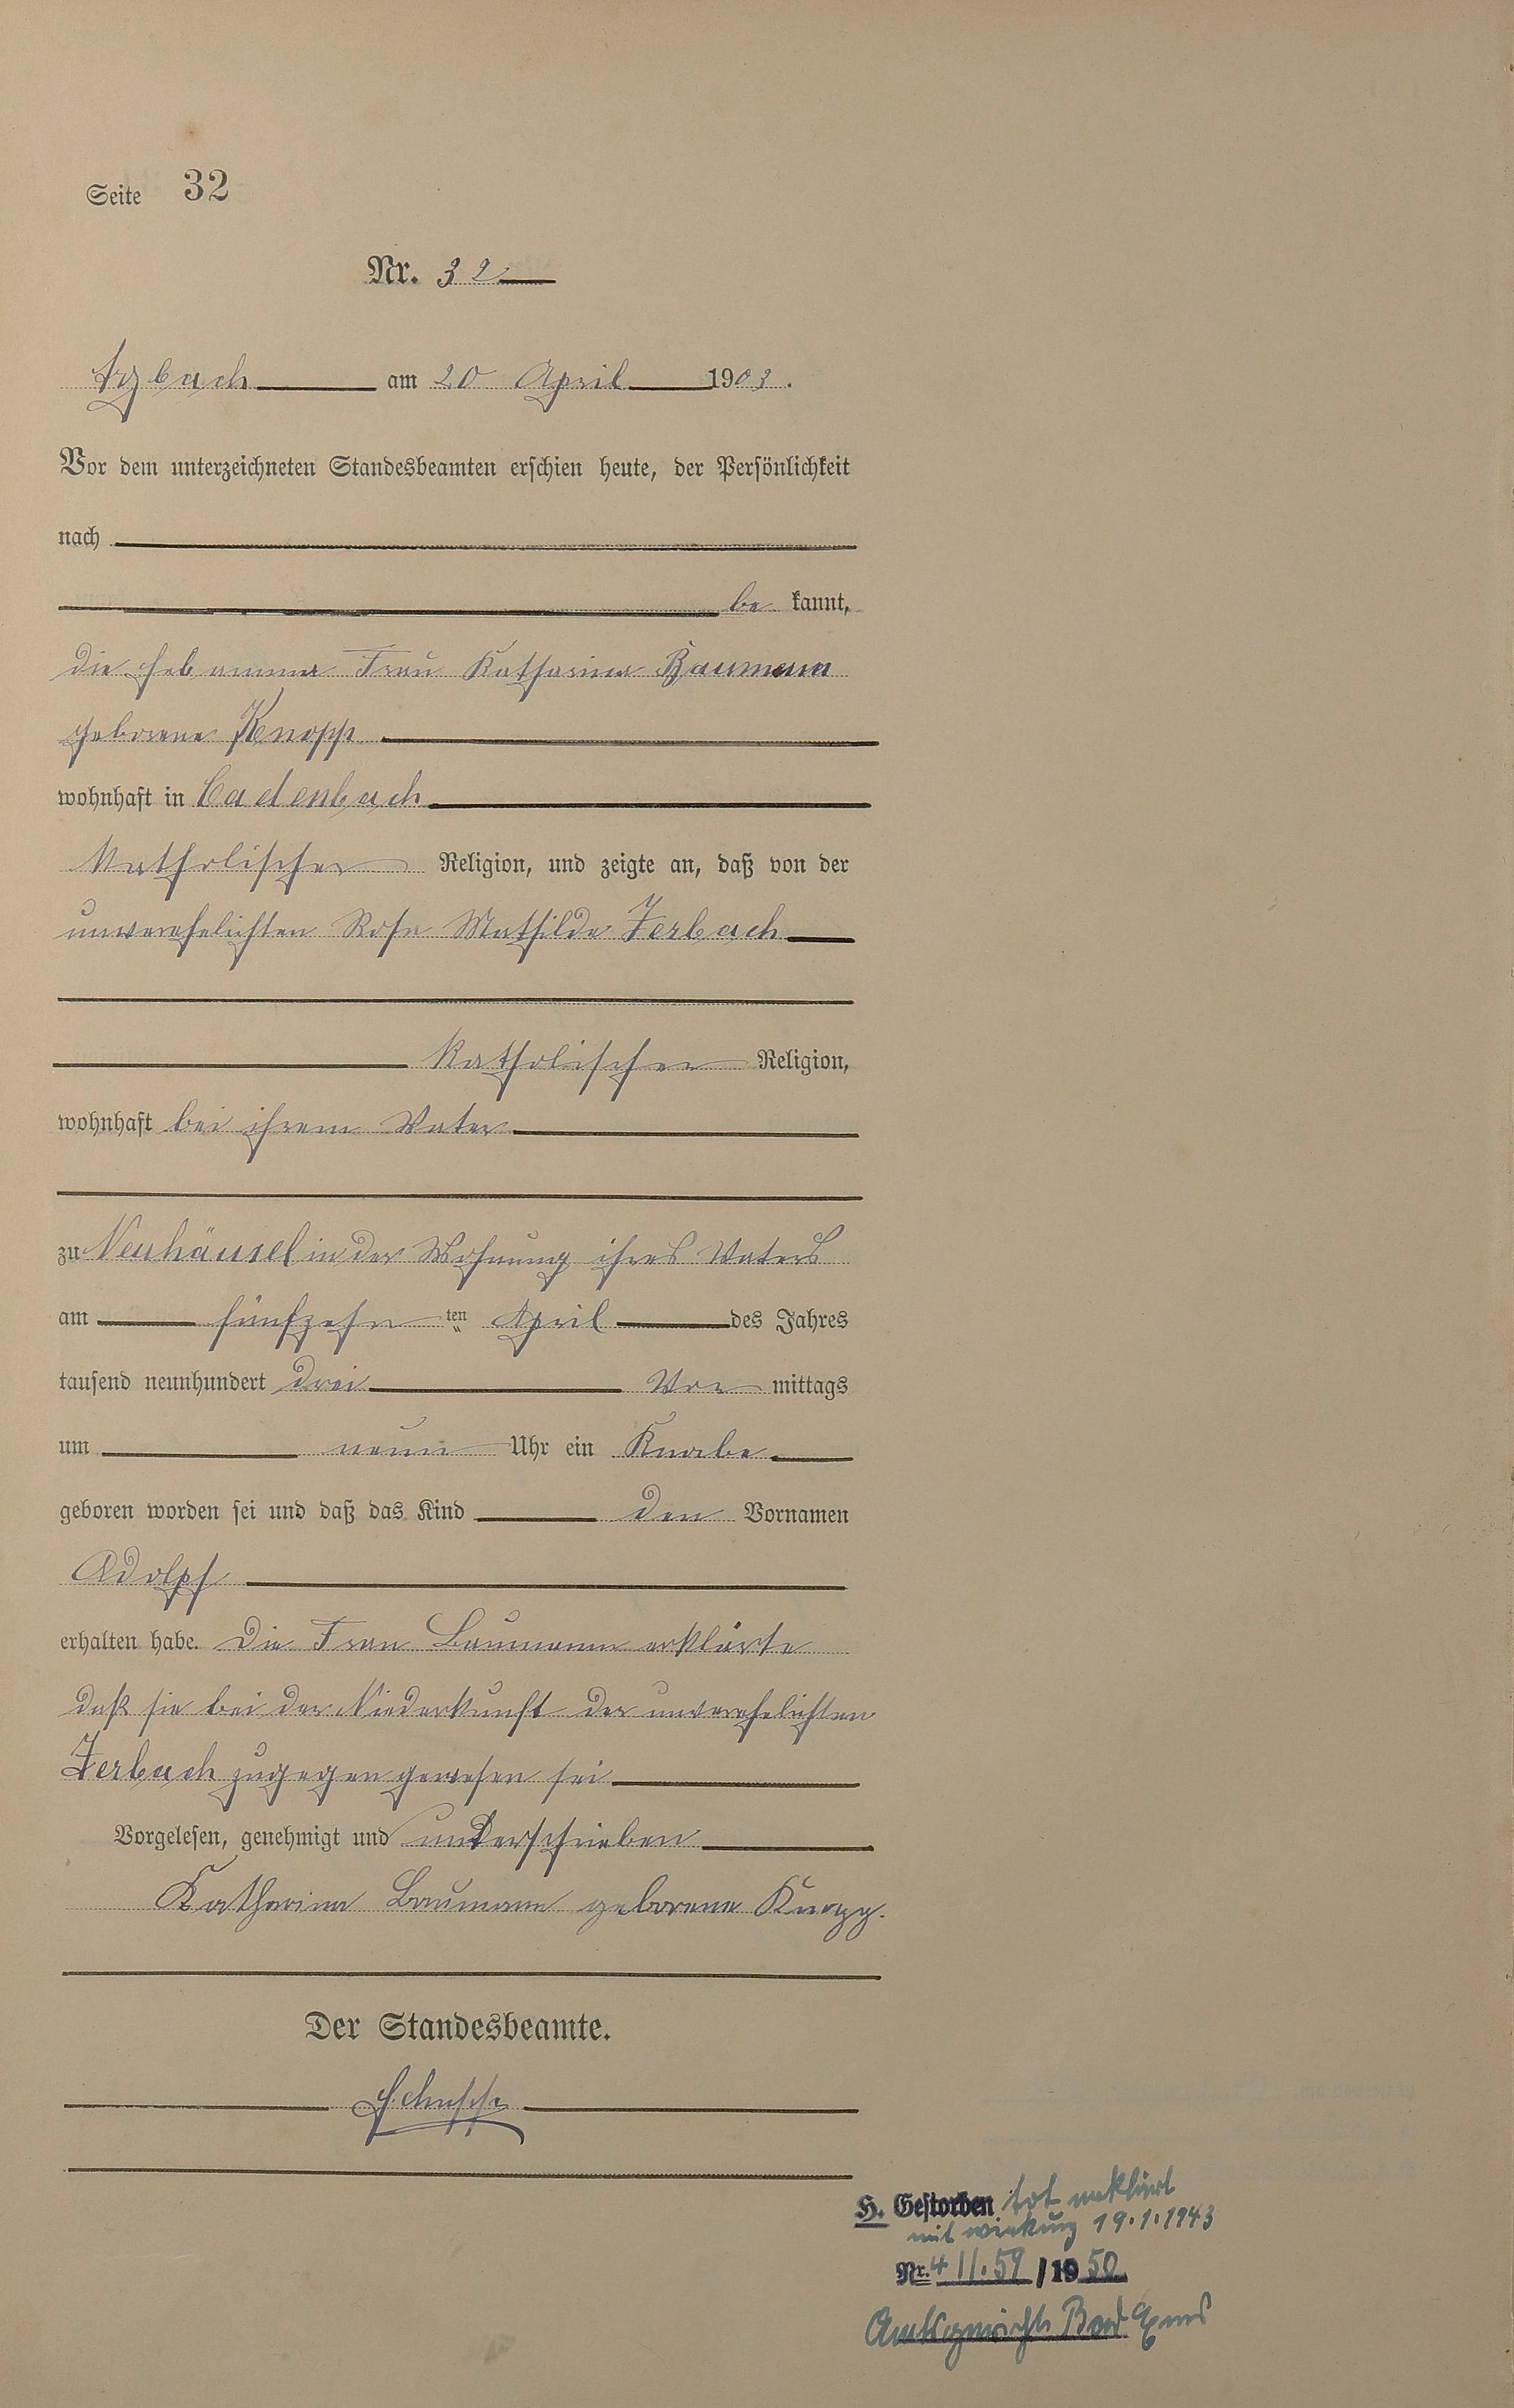 Seite 32
Nr. 32
Arzbach am 20 April 1903.
Vor dem unterzeichneten Standesbeamten erschien heute, der Persönlichkeit
nach
be kannt,
die Hebamme Frau Katharina Baumann
geborene Knopp
wohnhaft in Cadenbach
katholischer Religion, und zeigte an, daß von der
unverehelichten Rosa Mathilde Zerbach
katholischer Religion,
wohnhaft bei ihrem Vater
zu Neuhäusel in der Wohnung ihres Vaters
am fünfzehn ten April des Jahres
tausend neunhundert drei Vor mittags
um neun Uhr ein Knabe
geboren worden sei und daß das Kind den Vornamen
Adolph
erhalten habe. Die Frau Baumann erklärte
daß sie bei der Niederkunft der unverehelichten
Zerbach zugegen gewesen sei
Vorgelesen, genehmigt und unterschrieben
Katharina Baumann geborene Knopp.
Der Standesbeamte.
H. Gestorben tot erklärt
mit wirkung 19.1.1943
Nr. 4 II. 59 / 1950
Amtsgericht Bad Ems